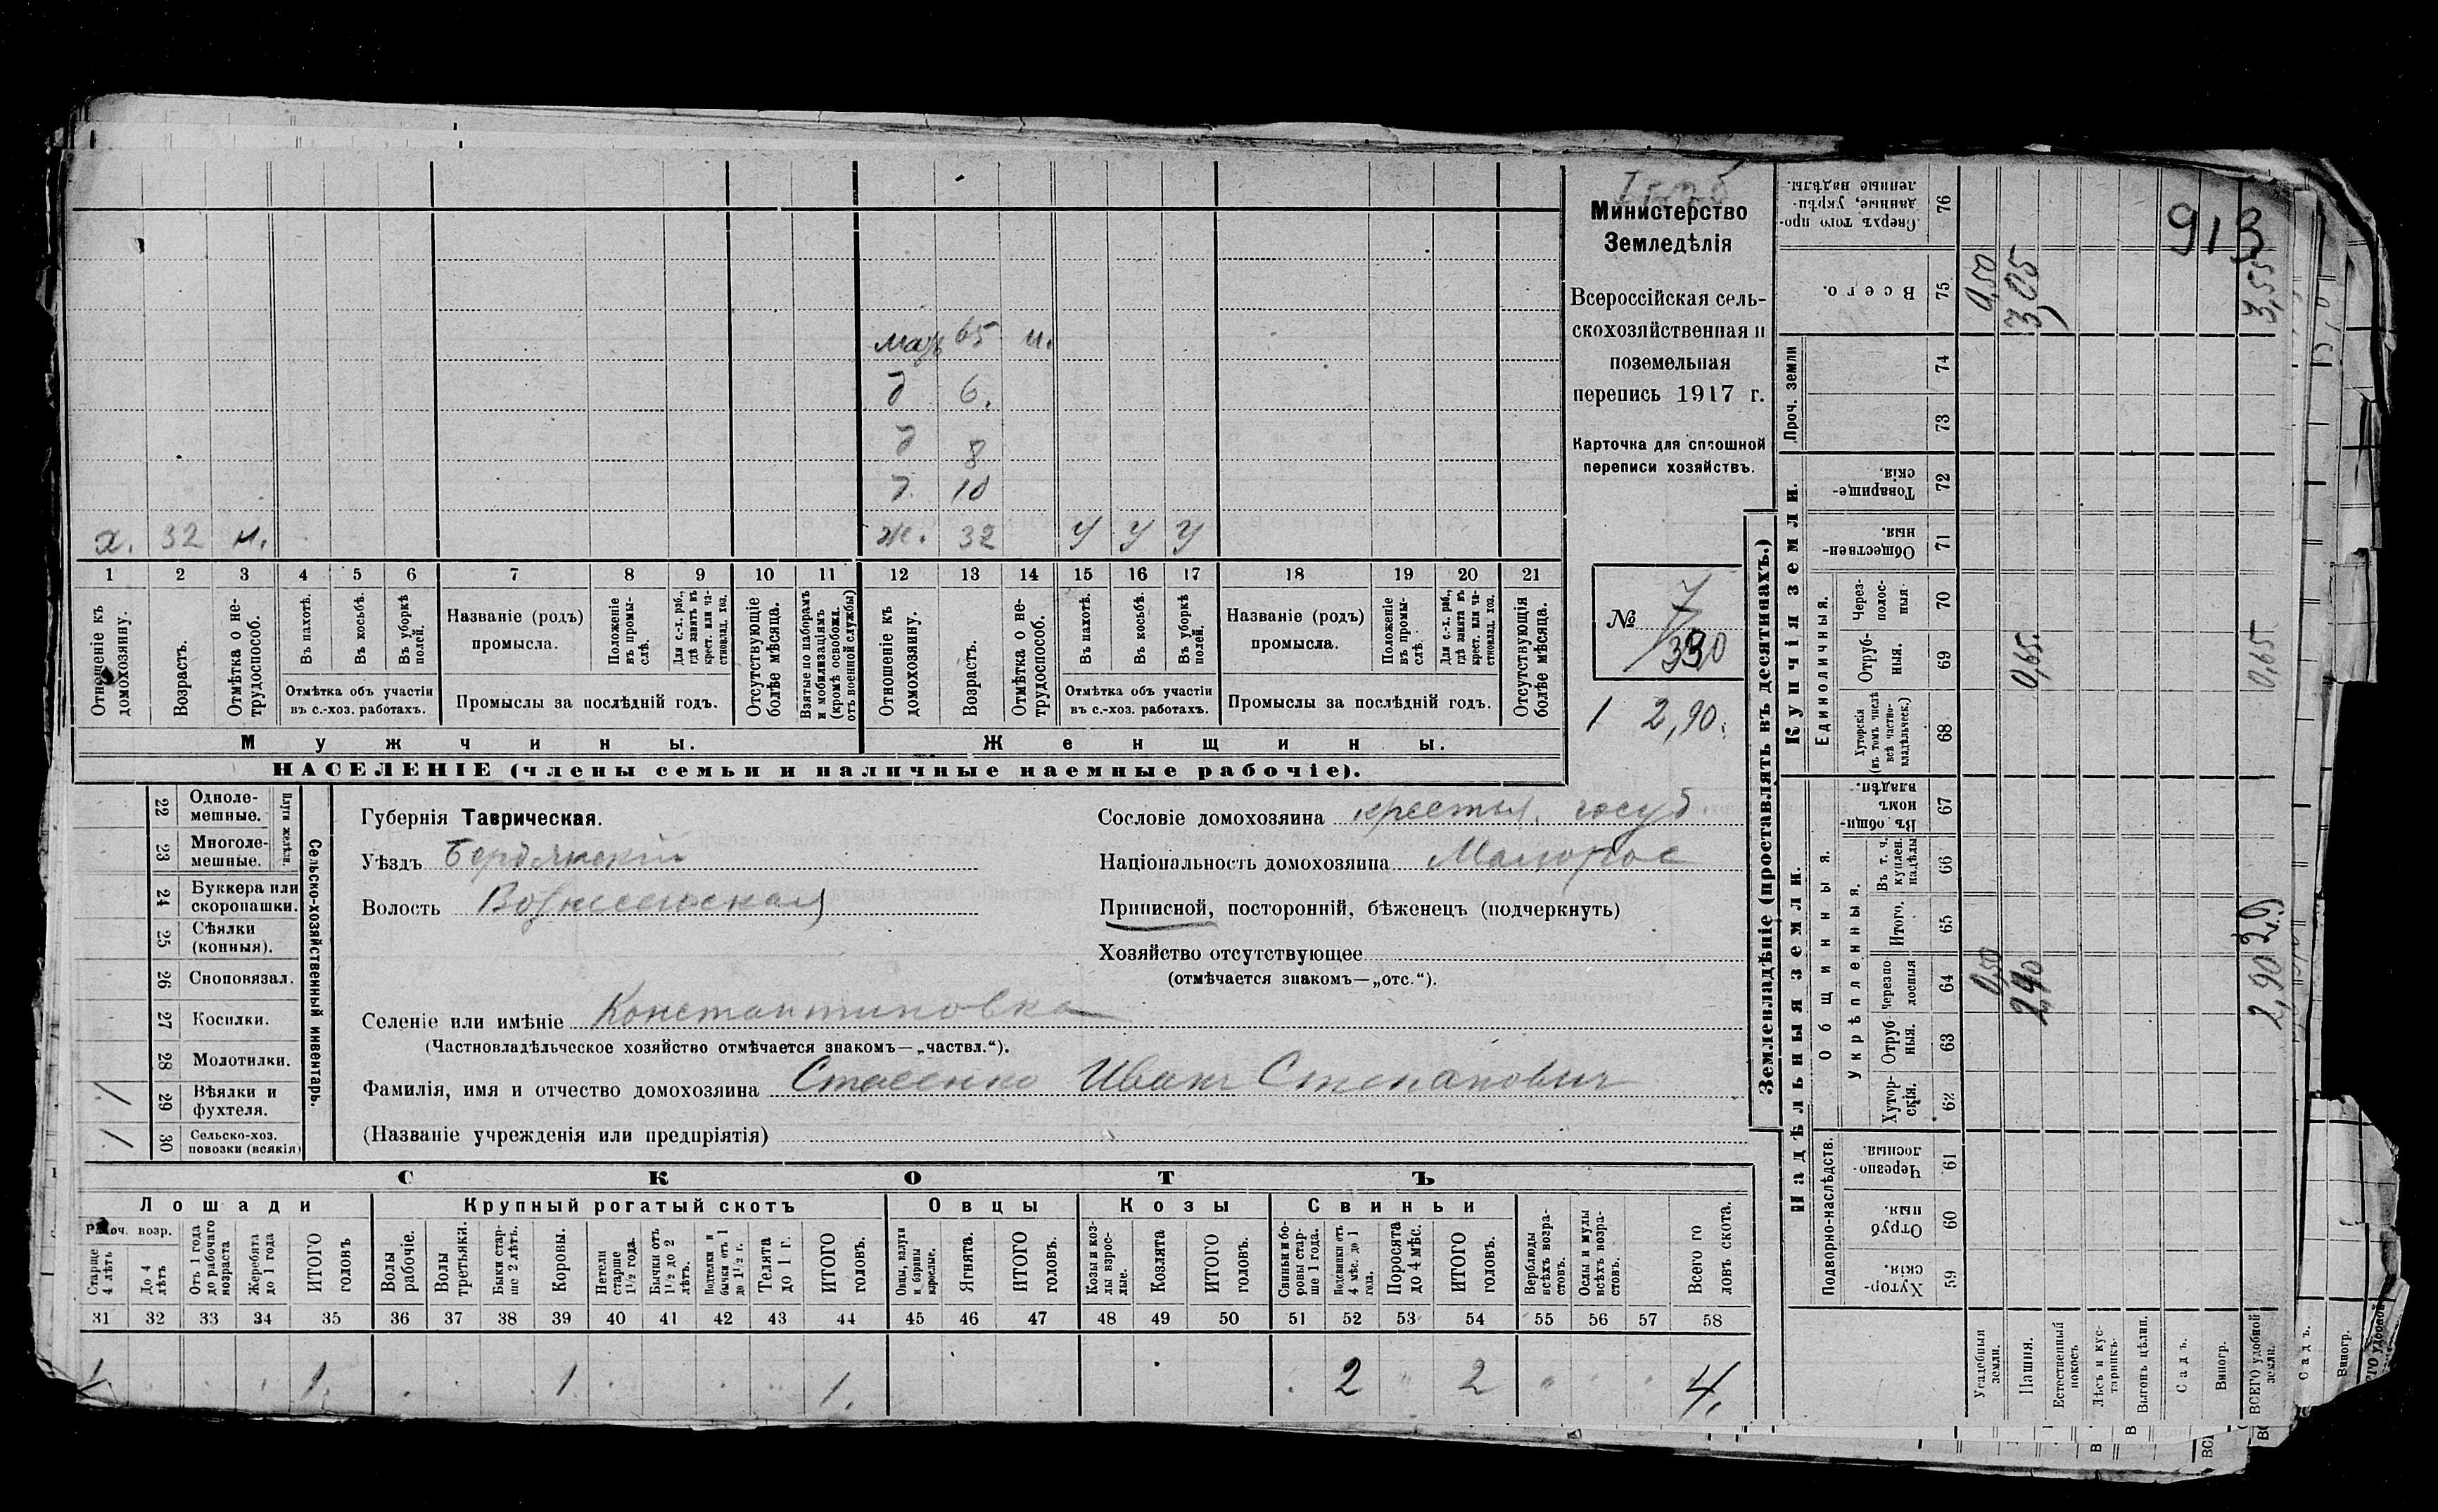 913
Министерство
Земледѣлія
Всероссійская сель-
скохозяйственная и
поземельная
перепись 1917 г.
Карточка для сплошной
переписи хозяйствъ.
№ 7
330
1 2,90.
мать 65 н.
д 6.
д 8
д. 10
х. 32 н. ж. 32 У У У
1 2 3 4 5 6 7 8 9 10 11 12 13 14 15 16 17 18 19 20 21
Отношеніе къ домохозяину.
Возрастъ.
Отмѣтка о не-трудоспособ.
Въ пахотѣ.
Въ косьбѣ.
Въ уборкѣ полей.
Отмѣтка объ участіи
въ с.-хоз. работахъ.
Названіе (родъ)
промысла.
Положеніе въ промы-слѣ.
Для с.-х. раб., гдѣ занятъ въ крест. или ча-стновлад. хоз.
Промыслы за послѣдній годъ.
Отсутствующіе болѣе мѣсяца.
Взятые по наборамъ и мобилизаціямъ (кромѣ освобожд. отъ военной службы)
Отношеніе къ домохозяину.
Возрастъ.
Отмѣтка о не-трудоспособ.
Въ пахотѣ.
Въ косьбѣ.
Въ уборкѣ полей.
Отмѣтка объ участіи
въ с.-хоз. работахъ.
Названіе (родъ)
промысла.
Положеніе въ промы-слѣ.
Для с.-х. раб., гдѣ занята въ крест. или ча-стновлад. хоз.
Промыслы за послѣдній годъ.
Отсутствующія болѣе мѣсяца.
Мужчины. Женщины.
НАСЕЛЕНІЕ (члены семьи и наличные наемные рабочіе).
Сельско-хозяйственный инвентарь.
Плуги желѣзн.
22 Одноле-мешные.
23 Многоле-мешные.
24 Буккера или скоропашки.
25 Сѣялки (конныя).
26 Сноповязал.
27 Косилки.
28 Молотилки.
/ 29 Вѣялки и фухтеля.
/ 30 Сельско-хоз. повозки (всякія)
Губернія Таврическая.
Уѣздъ Бердянскій
Волость Вознесенская
Сословіе домохозяина крестьян. госуд.
Національность домохозяина Малорос
Приписной, посторонній, бѣженецъ (подчеркнуть)
Хозяйство отсутствующее
(отмѣчается знакомъ—„отс.“).
Селеніе или имѣніе Константиновка
(Частновладѣльческое хозяйство отмѣчается знакомъ—„частвл.“).
Фамилія, имя и отчество домохозяина Стасенко Иванъ Степановичъ
(Названіе учрежденія или предпріятія)
СКОТЪ
Лошади Крупный рогатый скотъ Овцы Козы Свиньи
Рабоч. возр.
Старше 4 лѣтъ
До 4 лѣтъ
Отъ 1 года до рабочаго возраста
Жеребята до 1 года
ИТОГО головъ
Волы рабочіе.
Волы третьяки.
Быки стар-ше 2 лѣтъ.
Коровы.
Нетели старше 1½ года.
Бычки отъ 1½ до 2 лѣтъ.
Подтелки и бычки отъ 1 до 1½ г.
Телята до 1 г.
ИТОГО головъ.
Овцы, валухи и бараны взрослые.
Ягнята.
ИТОГО головъ.
Козы и коз-лы взрос-лые.
Козлята
ИТОГО головъ.
Свиньи и бо-ровы стар-ше 1 года.
Подсвинки отъ 4 мѣс. до 1 года.
Поросята до 4 мѣс.
ИТОГО головъ.
Верблюды всѣхъ возра-стовъ.
Ослы и мулы всѣхъ возра-стовъ.
Всего го ловъ скота.
31 32 33 34 35 36 37 38 39 40 41 42 43 44 45 46 47 48 49 50 51 52 53 54 55 56 57 58
1. 1. 1. 1. 2 " 2 " 4.
Землевладѣніе (проставлять въ десятинахъ.)
Надѣльныя земли. Купчія земли. Проч. земли
Подворно-наслѣдств.
Общинныя.
Укрѣпленныя.
Единоличныя.
59 Хутор-скія.
60 Отруб ныя.
61 Черезпо-лосныя.
62 Хутор-скія.
63 Отруб ныя.
64 Черезпо лосныя
65 Итого.
66 Въ т. ч. куплен. надѣлы
67 Въ общи-номъ владѣн.
68 Хуторскія (въ томъ числѣ всѣ частно-владѣльческ.)
69 Отруб-ныя.
70 Через-полос-ныя.
71 Обществен-ныя.
72 Товарище-скія.
73
74
75 Всего.
76 Сверхъ того про-данные, укрѣп-ленные надѣлы.
Усадебныя земли. 0,50 0,50
Пашня. 2,40 0,65. 3,05
Естественный покосъ
Лѣсъ и кус-тарникъ.
Выгонъ цѣлин.
Садъ.
Виногр.
ВСЕГО удобной земли. 2,90 2,9 0,65 3,55
Садъ.
Виногр.